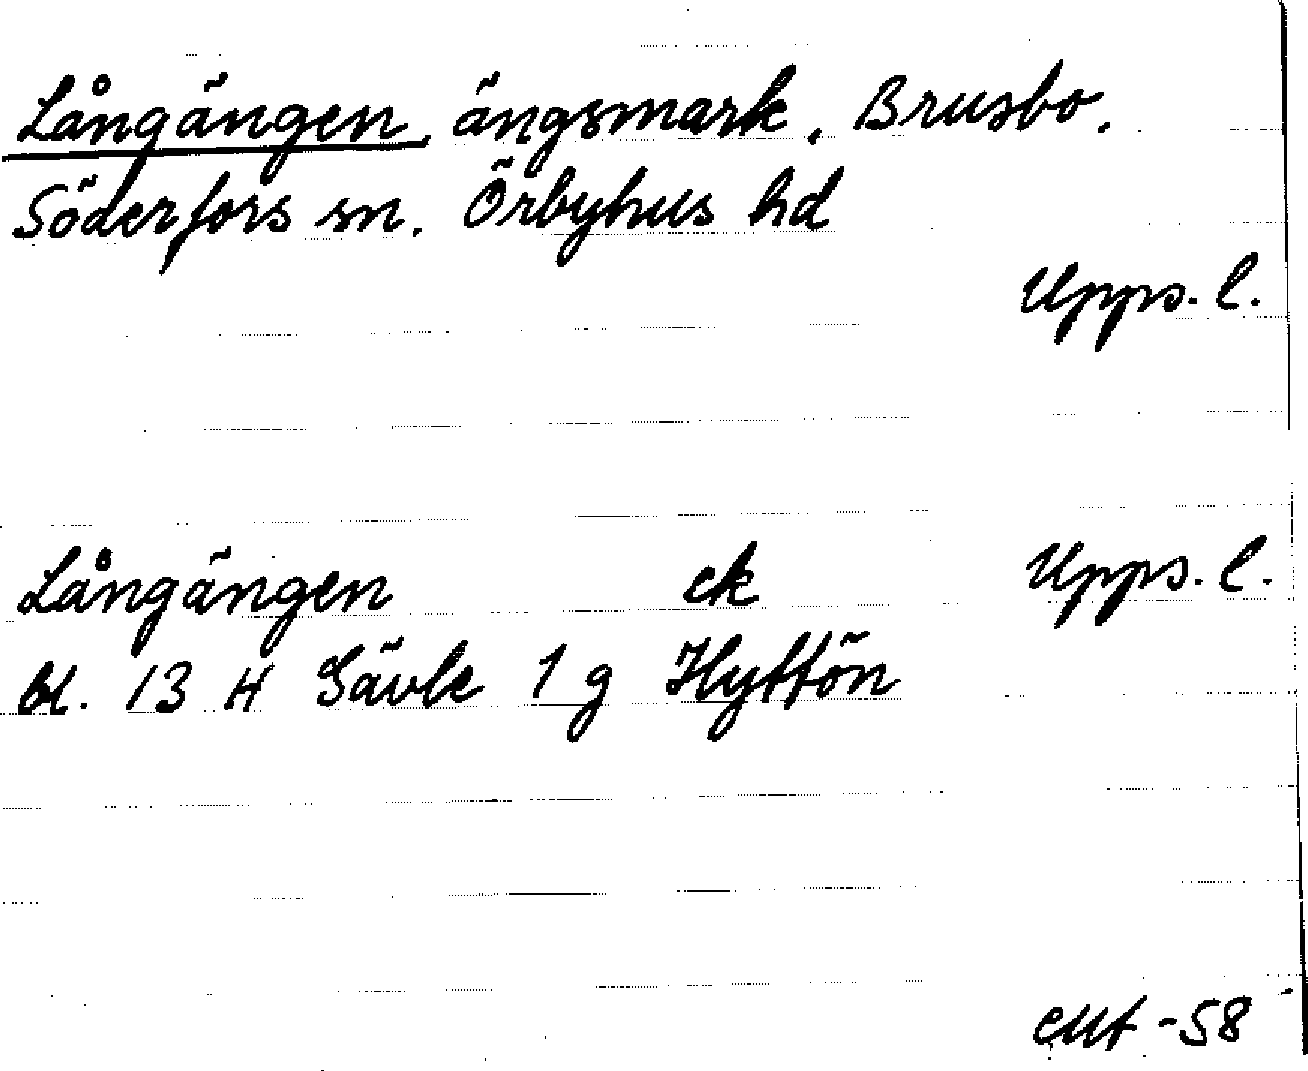 Långängen, ängsmark, Brusbo.
Söderfors sn. Örbyhus hd
Upps. l.
Långängen ek Upps. l.
bl. 13 H Gävle 1 g Hyttön
-58